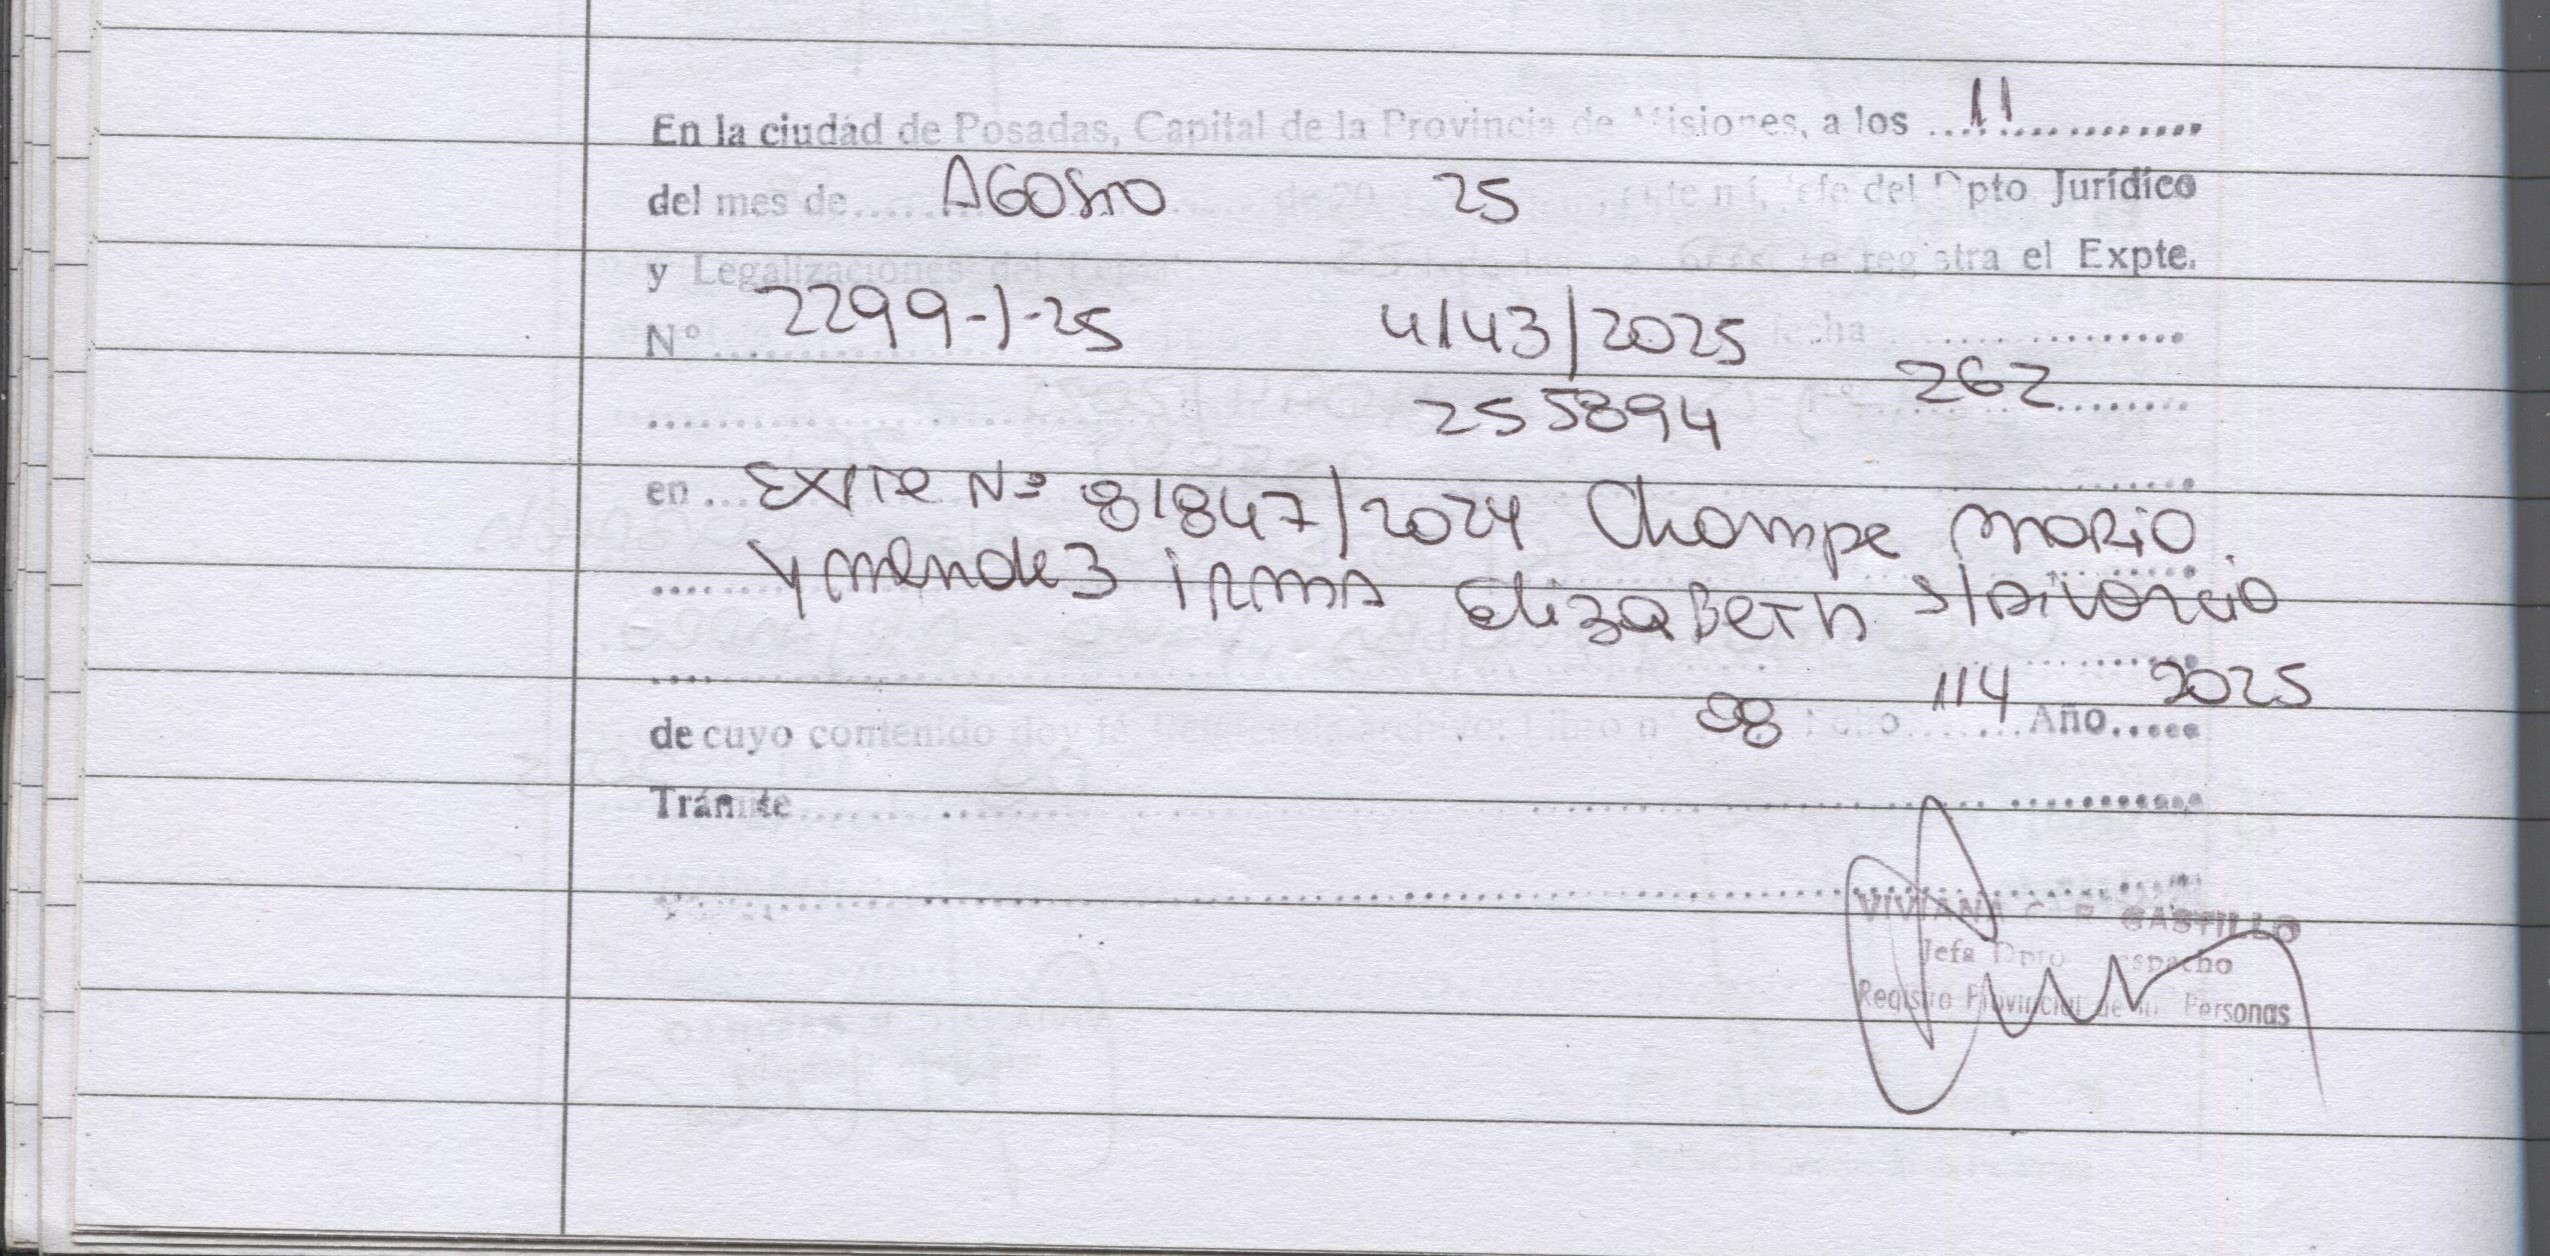 En la ciudad de Posadas, Capital de la Provincia de Misiones, a los 11
del mes de AGOSTO de 20 25, ante mí, Jefe del Dpto Jurídico
y Legalizaciones del se registra el Expte.
Nº 2299-1-25 4143/2025 fecha
255894 Nº 262
en EXPTE Nº 81847/2024 Champe MARIO.
Y MENDEZ IRMA ELIZABETH S/DIVORCIO
de cuyo contenido doy fé. Libro nº 08 Folio 114 Año 2025
Trámite
VIVIANA CASTILLO
Jefa Dpto Despacho
Registro Provincial de las Personas